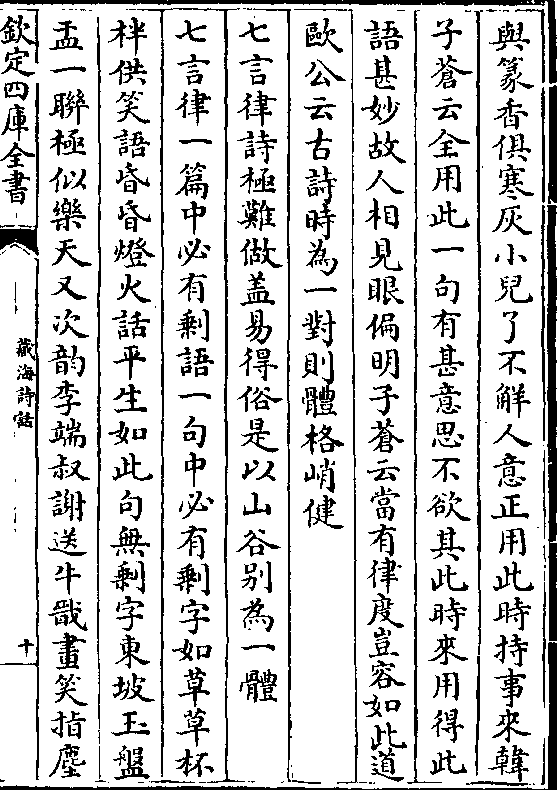 與篆香俱寒灰小兒了不觧人意正用此時持事來韓
子蒼云全用此一句有甚意思不欲其此時來用得此
語甚妙故人相見眼偏明子蒼云當有律度豈容如此道
歐公云古詩時為一對則體格峭健
七言律詩極難做盖易得俗是以山谷别為一體
七言律一篇中必有剩語一句中必有剩字如草草杯
柈供笑語昏昏燈火話平生如此句無剩字東坡玉盤
盂一聯極似樂天又次韵李端叔謝送牛戩畫笑指塵
欽定四庫全書
藏海詩話
十